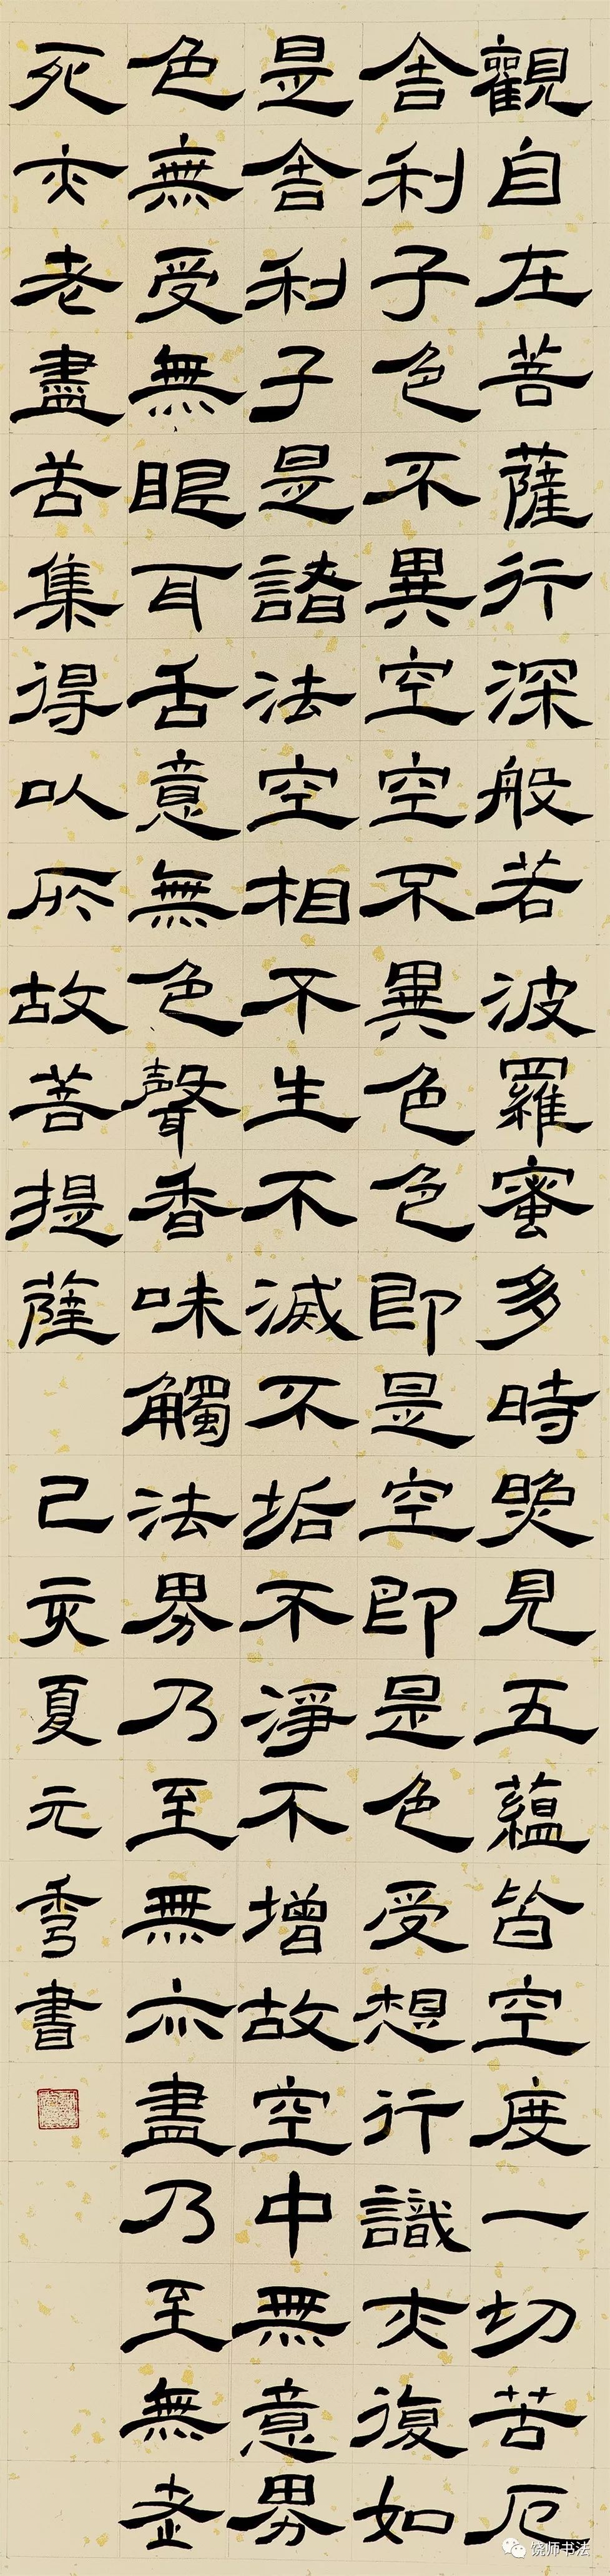 觀自在菩薩行深般若波羅蜜多時照見五蘊皆空度一切苦厄
舍利子色不異空空不異色色即是空即是色受想行識亦復如
是舍利子是諸法空相不生不滅不垢不淨不增故空中無意界
色無受無眼耳舌意無色聲香味觸法界乃至無亦盡乃至無老
死亦老盡苦集得以所故菩提薩 己亥夏元秀書
饶师书法